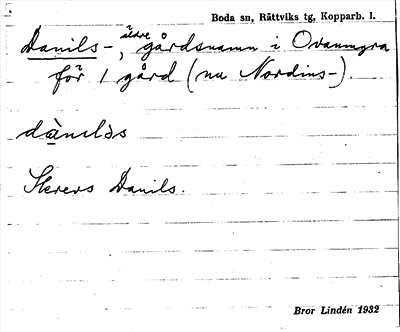 Boda sn, Rättviks tg, Kopparb. l.
Danils-, äldre gårdsnamn i Ovanmyra
för 1 gård (nu Nordins-).
dànilss
Skrevs Danils.
Bror Lindén 1932